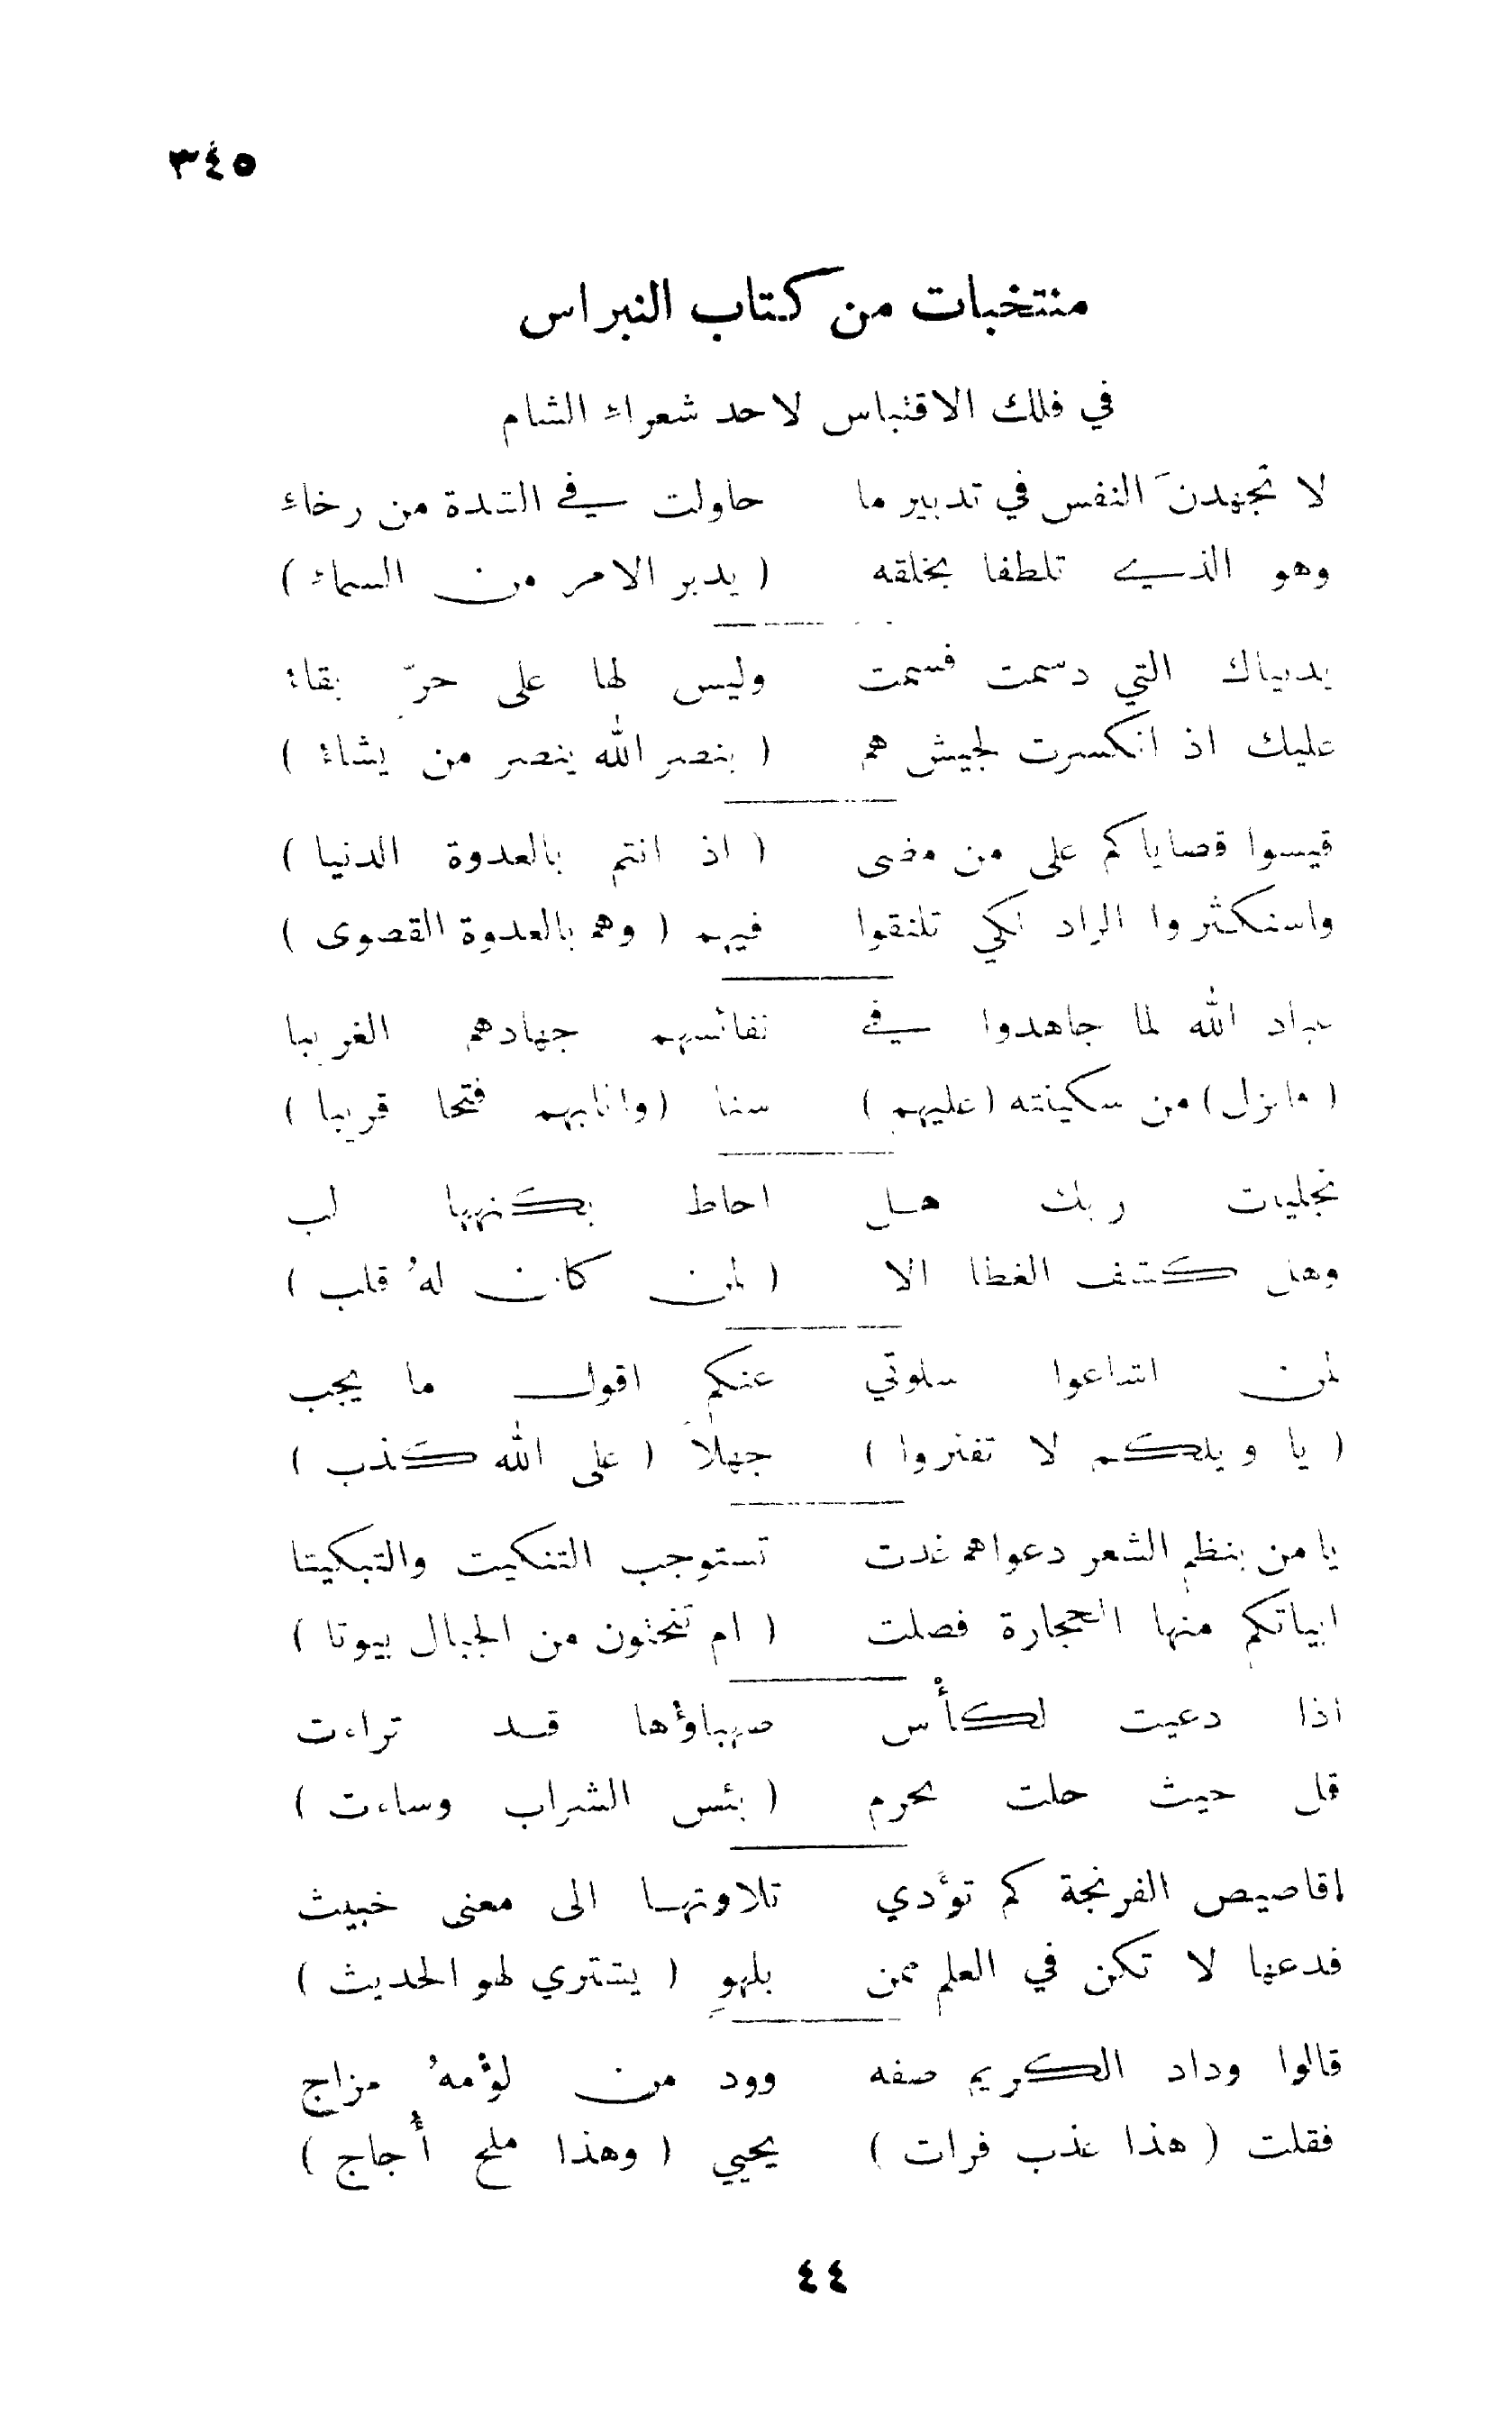 ٣٤٥
منتخبات من كتاب النبراس
في فلك الاقتباس لاحد شعراء الشام
لا تجهدنَ النفس في تدبير ما حاولت في الشدة من رخاء
وهو الذي تلطفا بخلقه ( يدبر الامر من السماء )
بدنياك التي وسمت فسمت وليس لها على حرّ بقاء
عليك اذ انكسرت لجيش هم ( بنصر الله ينصر من يشاء )
قيسوا قصاياكم على من مضى ( اذ انتم بالعدوة الدنيا )
واستكثروا الزاد لكي تلتقوا فيهم ( وهم بالعدوة القصوى )
عباد الله لما جاهدوا في نفائسهم جهادهم الغريبا
( فانزل ) من سكينته ( عليهم ) سنا ( واثابهم فتحا قريبا )
تجليات ربك هل احاط بكنهها لب
وهل كشف الغطا الا ( لمن كان لهُ قلب )
لمن اشاعوا سلوتي عنكم اقول ما يجب
( يا ويلكم لا تفتروا ) جهلاً ( على الله كذب )
يا من بنظم الشعر دعواهم غدت تستوجب التنكيت والتبكيتا
ابياتكم منها الحجارة فصلت ( ام تنحتون من الجبال بيوتا )
اذا دعيت لكأس صهباؤها قد تراءت
قل حيث حلت بحرم ( بئس الشراب وساءت )
اقاصيص الفرنجة كم تؤدي تلاوتها الى معنى خبيث
فدعها لا تكن في العلم ممن بلهوٍ ( يشتري لهو الحديث )
قالوا وداد الكريم صفه وود من لؤمهُ مزاج
فقلت ( هذا عذب فرات ) يحيي ( وهذا ملح أُجاج )
٤٤